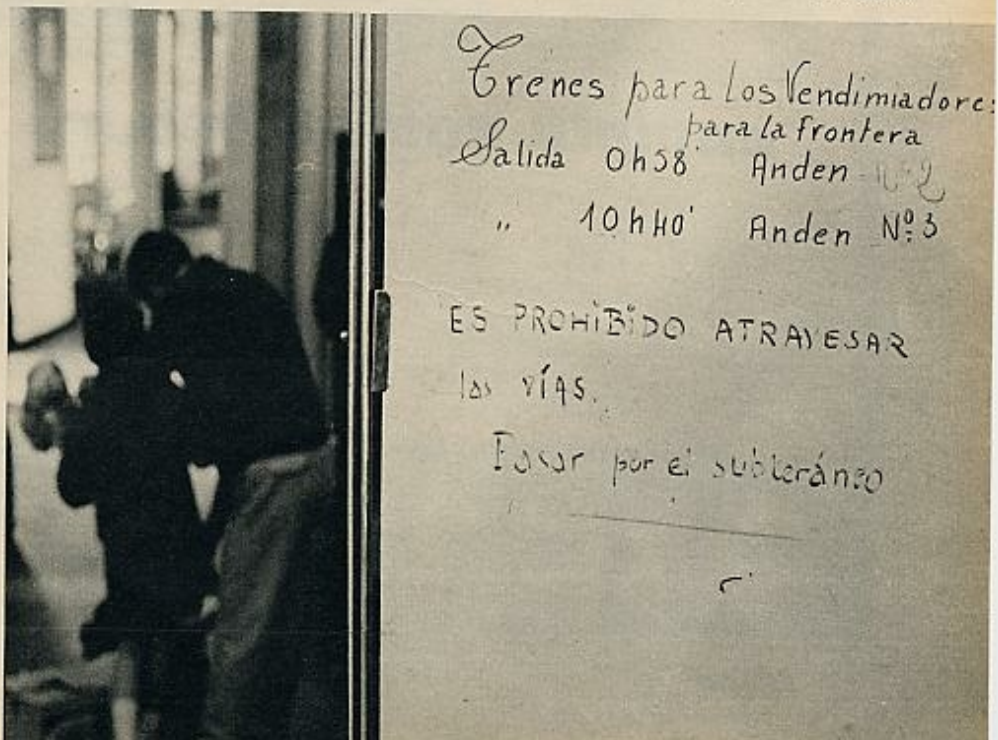 Trenes para los Vendimiadores
para la frontera
Salida 0h58' Anden Nº 2
" 10h40' Anden Nº 3
ES PROHIBIDO ATRAVESAR
las vías.
Pasar por el subteráneo